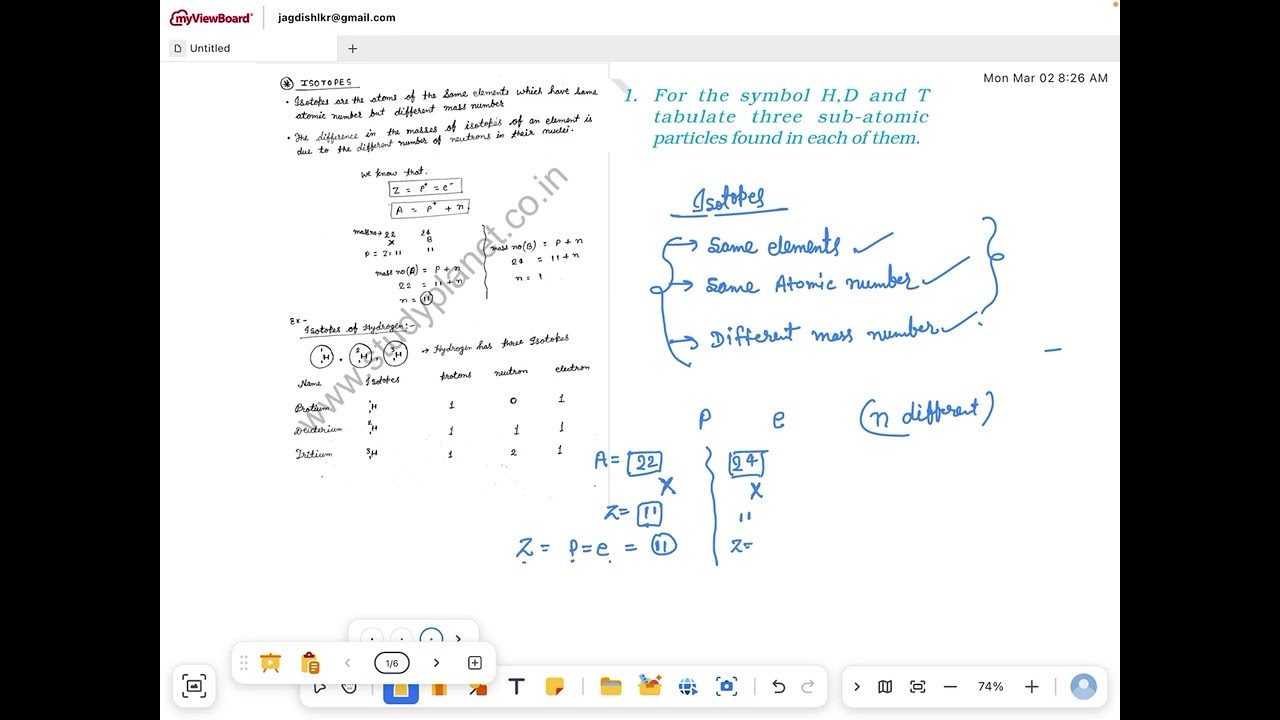 myViewBoard
jagdishlkr@gmail.com
Untitled
Mon Mar 02 8:26 AM
ISOTOPES
• Isotopes are the atoms of the same elements which have same
atomic number but different mass number
• The difference in the masses of isotopes of an element is
due to the different number of neutrons in their nuclei.
We know that.
Z = P⁺ = e⁻
A = P⁺ + n
mass no → 22 24
X B
P = Z = 11 11
mass no (A) = P + n
22 = 11 + n
n = 11
mass no (B) = P + n
24 = 11 + n
n = 1
Ex -
Isotopes of Hydrogen :-
¹₁H , ²₁H , ³₁H → Hydrogen has three Isotopes
Name Isotopes protons neutron electron
Protium ¹H 1 0 1
Deuterium ²H 1 1 1
Tritium ³H 1 2 1
www.studyplanet.co.in
1. For the symbol H,D and T
tabulate three sub-atomic
particles found in each of them.
Isotopes
→ Same elements ✓
→ Same Atomic number ✓
→ Different mass number ✓
P e (n different)
A = 22 24
X X
Z = 11 11
Z = P = e = 11 Z =
1/6
74%